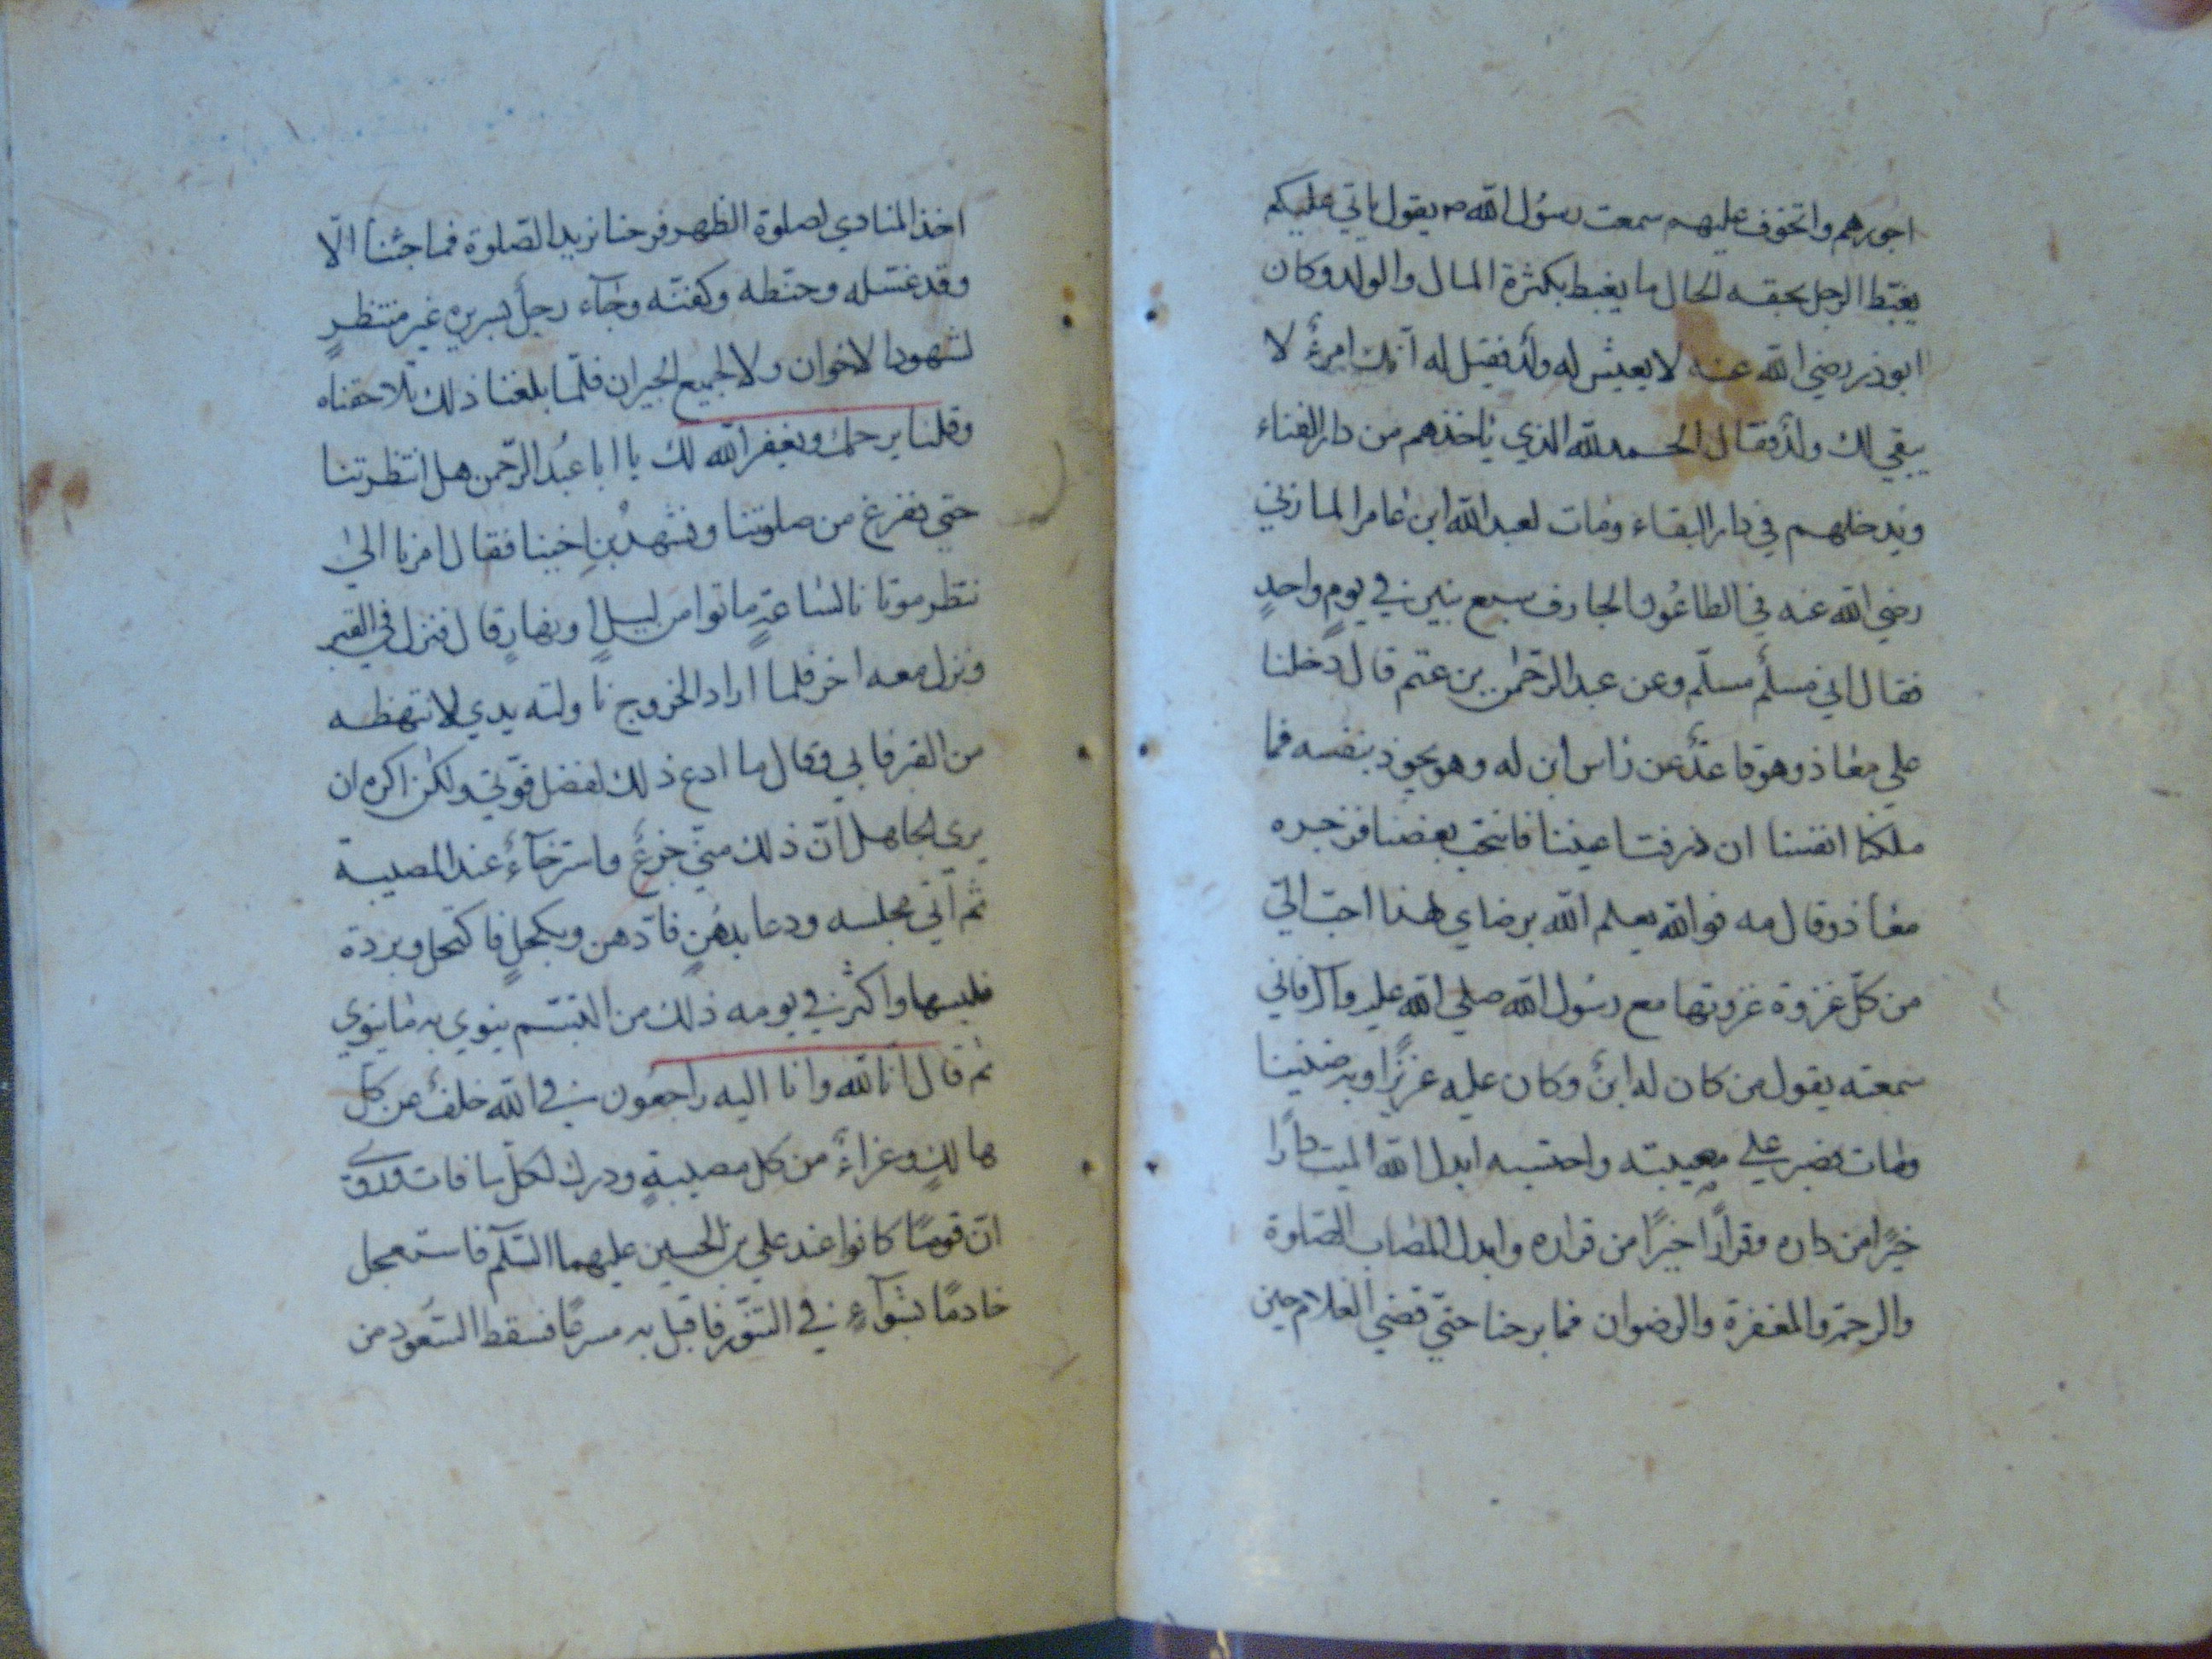 اجورهم واتخوف عليهم سمعت رسول الله ص يقول ياتي عليكم
يغبّط الرجل بحقه الحال ما يغبط بكثرة المال والولد وكان
ابوذر رضي الله عنه لا يعيش له ولدٌ فقيل له انك امرءٌ لا
يبقي لك ولدٌ فقال الحمدلله الذي ياخذهم من دار الفناء
ويدخلهم في دار البقاء ومات لعبد الله ابن عامر المازني
رضي الله عنه في الطاعون الجارف سبع بنين في يومٍ واحدٍ
فقال اني مسلمٌ مسلّم وعن عبد الرحمن بن عتم قال دخلنا
علي معاذ وهو قاعدٌ عن راس ابن له وهو يجوذ بنفسه فما
ملكنا انفسنا ان ذرفت اعيننا فانتحب بعضنا فزجره
معاذ وقال مه فوالله يعلم الله برضاي لهذا احبّ اليّ
من كلّ غزوة غزوتها مع رسول الله صلي الله عليه وآله فاني
سمعته يقول من كان له ابنٌ وكان عليه عزيزًا وبه ضنينا
ومات فصبر علي مصيبته واحتسبه ابدل الله الميت دارًا
خيرًا من داره وقرارًا خيرًا من قراره وابدل المصاب الصلوة
والرحمة والمغفرة والرضوان فما برحنا حتيّ قضي الغلام حين
اخذ المنادي لصلوة الظهر فرحنا نريد الصّلوة فما جئنا الّا
وقد غسّله وحنّطه وكفّنه وجآء رجلٌ بسريره غير منتظرٍ
لشهود الاخوان ولا لجميع الجيران فلمّا بلغنا ذلك تلاحقناه
وقلنا يرحمك ويغفر الله لك يا ابا عبد الرّحمن هل انتظرتنا
حتي نفرغ من صلوتنا ونشهد بن اخينا فقال امرنا الي
ننتظر موتانا لساعةٍ ماتوا من ليلٍ او نهارٍ قال فنزل في القبر
ونزل معه اخر فلما اراد الخروج ناولته يدي لانهظه
من القبر فابي وقال ما ادع ذلك لفضل قوّتي ولكن اكره ان
يري الجاهل انّ ذلك منّي جزعٌ واسترخآءٌ عند المصيبة
ثم اتي مجلسه ودعا بدهنٍ فادّهن وبكحلٍ فاكتحل وبردة
فلبسها واكثر في يومه ذلك من التبسّم ينوي به ما ينوي
ثم قال انا لله وانا اليه راجعون في الله خلفٌ عن كلّ
هالكٍ وعزاءٌ من كل مصيبةٍ ودرك لكلّ ما فات وروي
انّ قومًا كانوا عند علي بن الحسين عليهما السّلام فاستعجل
خادمًا بشوآءٍ في التنّور فاقبل به مسرعًا فسقط السّفود من